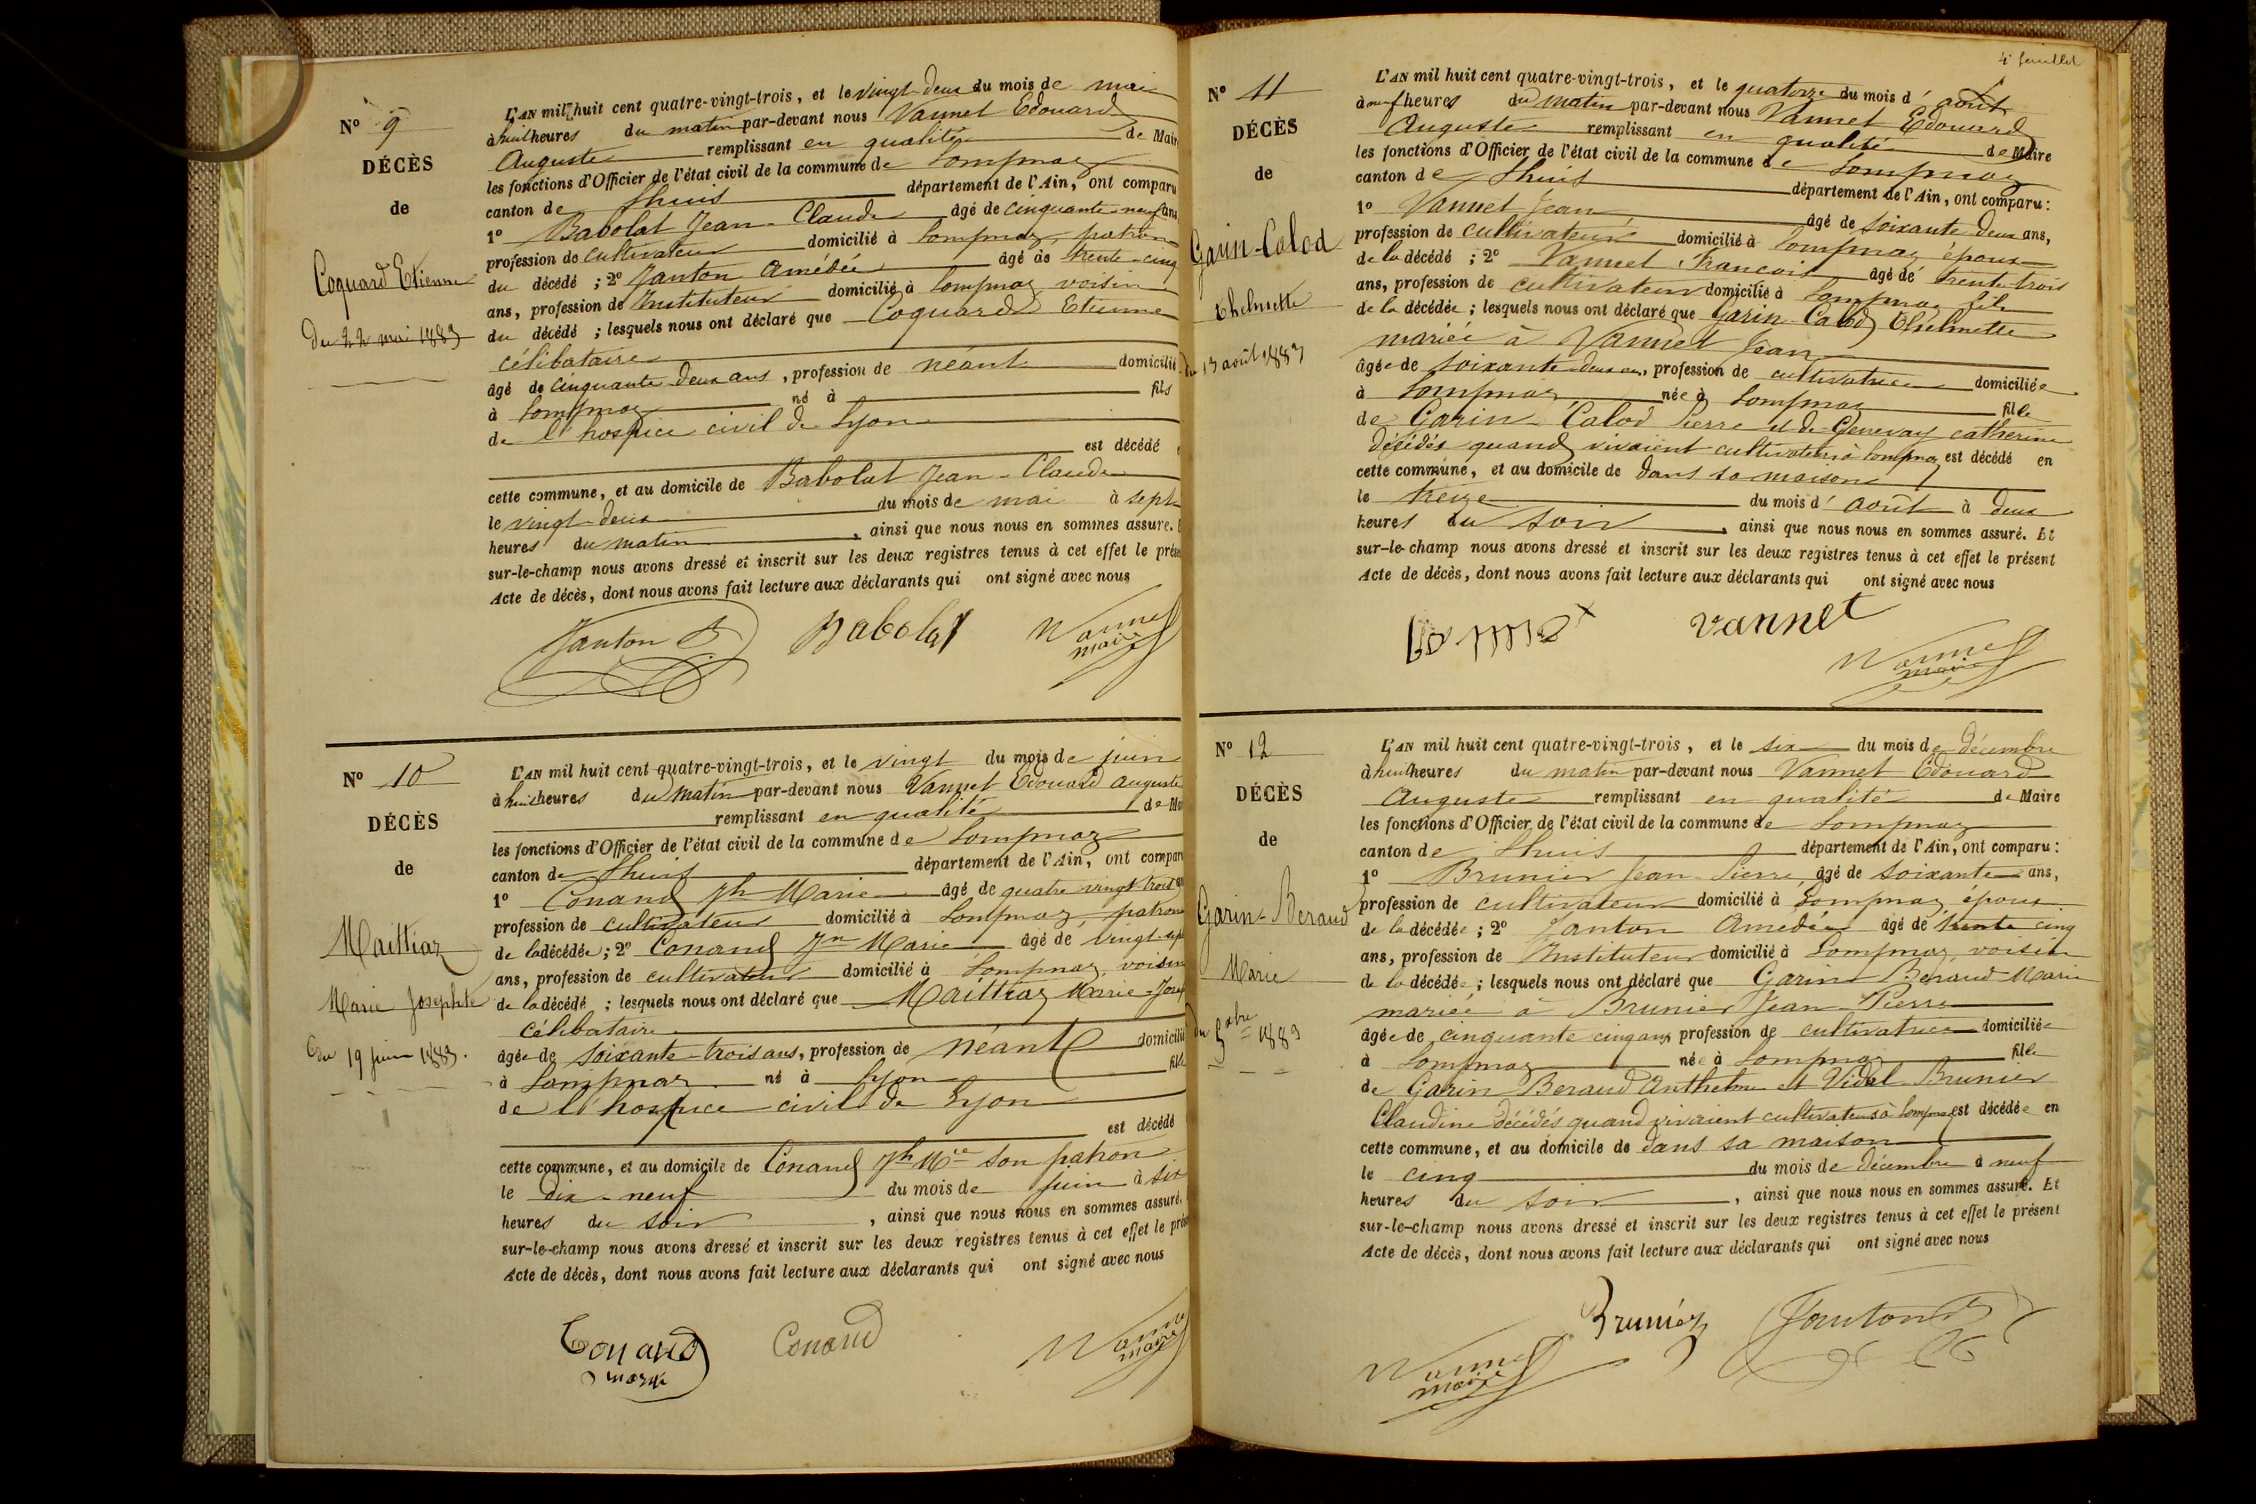 N° 9
DÉCÈS
de
Coquard Etienne
Du 22 mai 1883
L'AN mil huit cent quatre-vingt-trois, et le vingt-deux du mois de mai
à huit heures du matin par-devant nous Vannet Edouard
Auguste remplissant en qualité de Mair
les fonctions d'Officier de l'état civil de la commune de Lompnaz
canton de Lhuis département de l'Ain, ont comparu
1° Babolat Jean-Claude âgé de cinquante-neuf ans
profession de cultivateur domicilié à Lompnaz, patron
du décédé ; 2° Janton Amédée âgé de trente-cinq
ans, profession de Instituteur domicilié à Lompnaz voisin
du décédé ; lesquels nous ont déclaré que Coquard Etienne
célibataire
âgé de cinquante deux ans, profession de néant domicilié
à Lompnaz né à fils
de l'hospice civil de Lyon
est décédé
cette commune, et au domicile de Babolat Jean-Claude
le vingt-deux du mois de mai à sept
heures du matin, ainsi que nous nous en sommes assuré. E
sur-le-champ nous avons dressé et inscrit sur les deux registres tenus à cet effet le prése
Acte de décès, dont nous avons fait lecture aux déclarants qui ont signé avec nous
Janton Babolat Vannet
maire
N° 10
DÉCÈS
de
Maittiaz
Marie Josephte
du 19 juin 1883.
L'AN mil huit cent quatre-vingt-trois, et le vingt du mois de juin
à huit heures du matin par-devant nous Vannet Edouard Auguste
remplissant en qualité de Ma
les fonctions d'Officier de l'état civil de la commune de Lompnaz
canton de Lhuis département de l'Ain, ont compar
1° Conand Jh Marie âgé de quatre vingt trois
profession de cultivateur domicilié à Lompnaz patron
de la décédée ; 2° Conand Jn Marie âgé de vingt-sept
ans, profession de cultivateur domicilié à Lompnaz, voisin
de la décédé ; lesquels nous ont déclaré que Maittiaz Marie-Josep
célibataire
âgée de soixante-trois ans, profession de néant domicilié
à Lompnaz né à Lyon fille
de l'hospice civil de Lyon
est décédé
cette commune, et au domicile de Conand Jh Mie son patron
le dix-neuf du mois de juin à six
heures du soir, ainsi que nous nous en sommes assuré.
sur-le-champ nous avons dressé et inscrit sur les deux registres tenus à cet effet le prése
Acte de décès, dont nous avons fait lecture aux déclarants qui ont signé avec nous
Conand Conand Vannet
maire
4e feuillet
N° 11
DÉCÈS
de
Garin-Calod
Thelmette
du 13 août 1883
L'AN mil huit cent quatre-vingt-trois, et le quatorze du mois d'août
à neuf heures du matin par-devant nous Vannet Edouard
Auguste remplissant en qualité de Maire
les fonctions d'Officier de l'état civil de la commune de Lompnaz
canton de Lhuis département de l'Ain, ont comparu :
1° Vannet Jean âgé de soixante deux ans,
profession de cultivateur domicilié à Lompnaz époux
de la décédé ; 2° Vannet François âgé de trente-trois
ans, profession de cultivateur domicilié à Lompnaz fils
de la décédée ; lesquels nous ont déclaré que Garin-Calod Thelmette
mariée à Vannet Jean
âgée de soixante-deux ans, profession de cultivatrice domiciliée
à Lompnaz née à Lompnaz fille
de Garin-Calod Pierre et de Genevay catherine
décédés quand vivaient cultivateurs à Lompnaz est décédé en
cette commune, et au domicile de dans sa maison
le treize du mois d'août à deux
heures du soir, ainsi que nous nous en sommes assuré. Et
sur-le-champ nous avons dressé et inscrit sur les deux registres tenus à cet effet le présent
Acte de décès, dont nous avons fait lecture aux déclarants qui ont signé avec nous
vannet Vannet
maire
N° 12
DÉCÈS
de
Garin-Beraud
Marie
du 5 xbre 1883
L'AN mil huit cent quatre-vingt-trois, et le six du mois de décembre
à huit heures du matin par-devant nous Vannet Edouard
Auguste remplissant en qualité de Maire
les fonctions d'Officier de l'état civil de la commune de Lompnaz
canton de Lhuis département de l'Ain, ont comparu :
1° Brunier Jean-Pierre, âgé de soixante ans,
profession de cultivateur domicilié à Lompnaz époux
de la décédée ; 2° Janton Amédée âgé de trente cinq
ans, profession de Instituteur domicilié à Lompnaz, voisin
de la décédée ; lesquels nous ont déclaré que Garin Beraud Marie
mariée à Brunier Jean-Pierre
âgée de cinquante cinq ans, profession de cultivatrice domiciliée
à Lompnaz née à Lompnaz fille
de Garin-Beraud Anthelme et Vidal-Brunier
Claudine décédés quand vivaient cultivateurs à Lompnaz est décédée en
cette commune, et au domicile de dans sa maison
le cinq du mois de décembre à neuf
heures du soir, ainsi que nous nous en sommes assuré. Et
sur-le-champ nous avons dressé et inscrit sur les deux registres tenus à cet effet le présent
Acte de décès, dont nous avons fait lecture aux déclarants qui ont signé avec nous
Brunier Janton
Vannet
maire